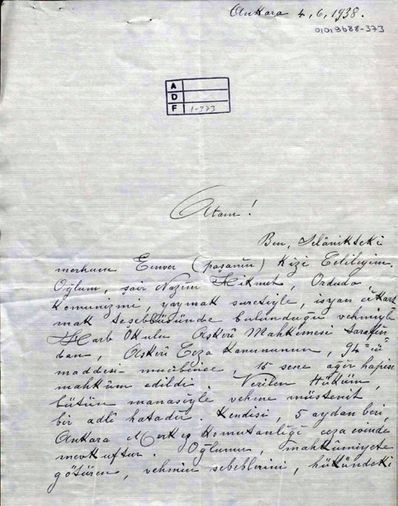 Ankara 4,6,1938.
01019688-373
A
D
F 1-773
Atam!
Ben, Selânikteki
merhum Enver (paşanın) kizi Celileyim.
Oğlum, şair Nazım Hikmet, Orduda
Komunizmi yaymak suretiyle, isyan çıkart
mak teşebbüsünde bulunduğu vehmiyle
Harb Okulu Askerî Mahkemesi tarafın
dan, Askerî Ceza Kanununun, 94 üncü
maddesi mucibince 15 sene ağır hapise
mahkûm edildi. Verilen Hüküm,
bütün manasiyle vehme müstenit
bir adlî hatadır. Kendisi, 5 aydan beri,
Ankara Merkez Komutanlığı ceza evinde
mevkuftur. Oğlumu, mahkûmiyete
götüren, vehmin sebeblerini, hükümdeki